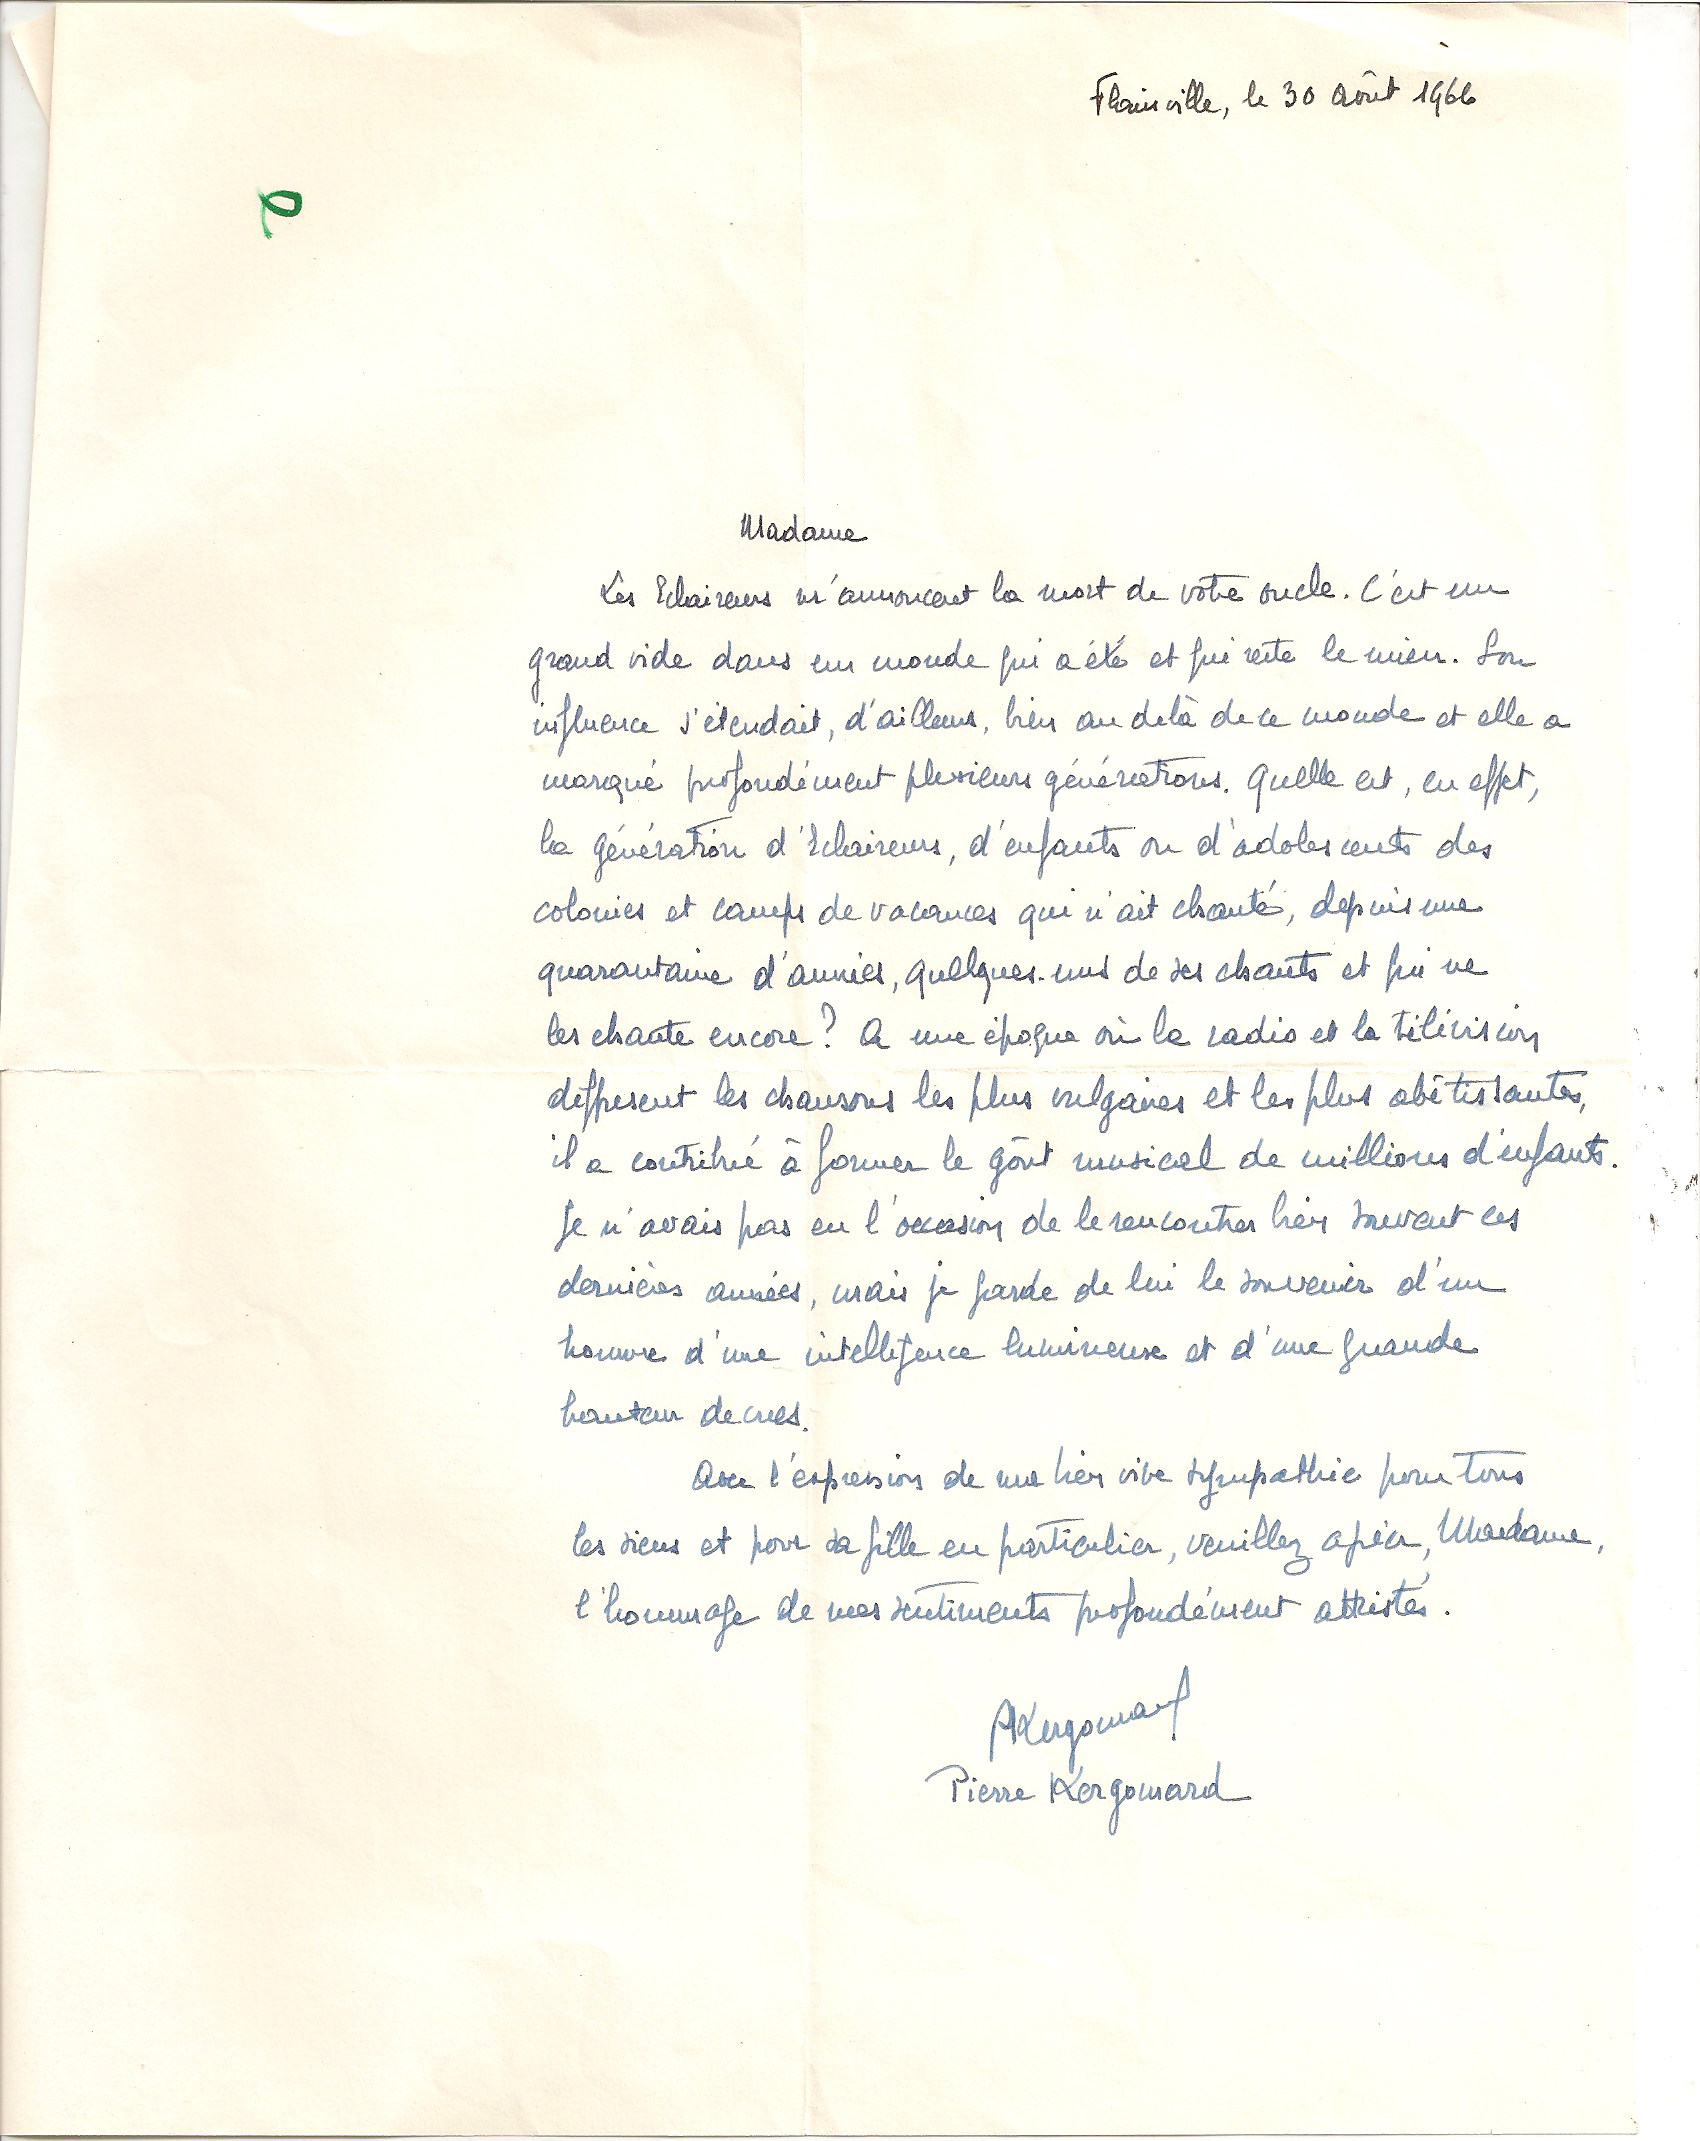 Flainville, le 30 Août 1966
Madame
Les Eclaireurs m'annoncent la mort de votre oncle. C'est un
grand vide dans un monde qui a été et qui reste le mien. Son
influence s'étendait, d'ailleurs, bien au delà de ce monde et elle a
marqué profondément plusieurs générations. Quelle est, en effet,
la génération d'Eclaireurs, d'enfants ou d'adolescents des
colonies et camps de vacances qui n'ait chanté, depuis une
quarantaine d'années, quelques-uns de ses chants et qui ne
les chante encore ? A une époque où la radio et la télévision
diffusent les chansons les plus vulgaires et les plus abêtissantes,
il a contribué à former le goût musical de millions d'enfants.
Je n'avais pas eu l'occasion de le rencontrer bien souvent ces
dernières années, mais je garde de lui le souvenir d'un
homme d'une intelligence lumineuse et d'une grande
hauteur de vues.
Avec l'expression de ma bien vive sympathie pour tous
les siens et pour sa fille en particulier, veuillez agréer, Madame,
l'hommage de mes sentiments profondément attristés.
PKergomard
Pierre Kergomard